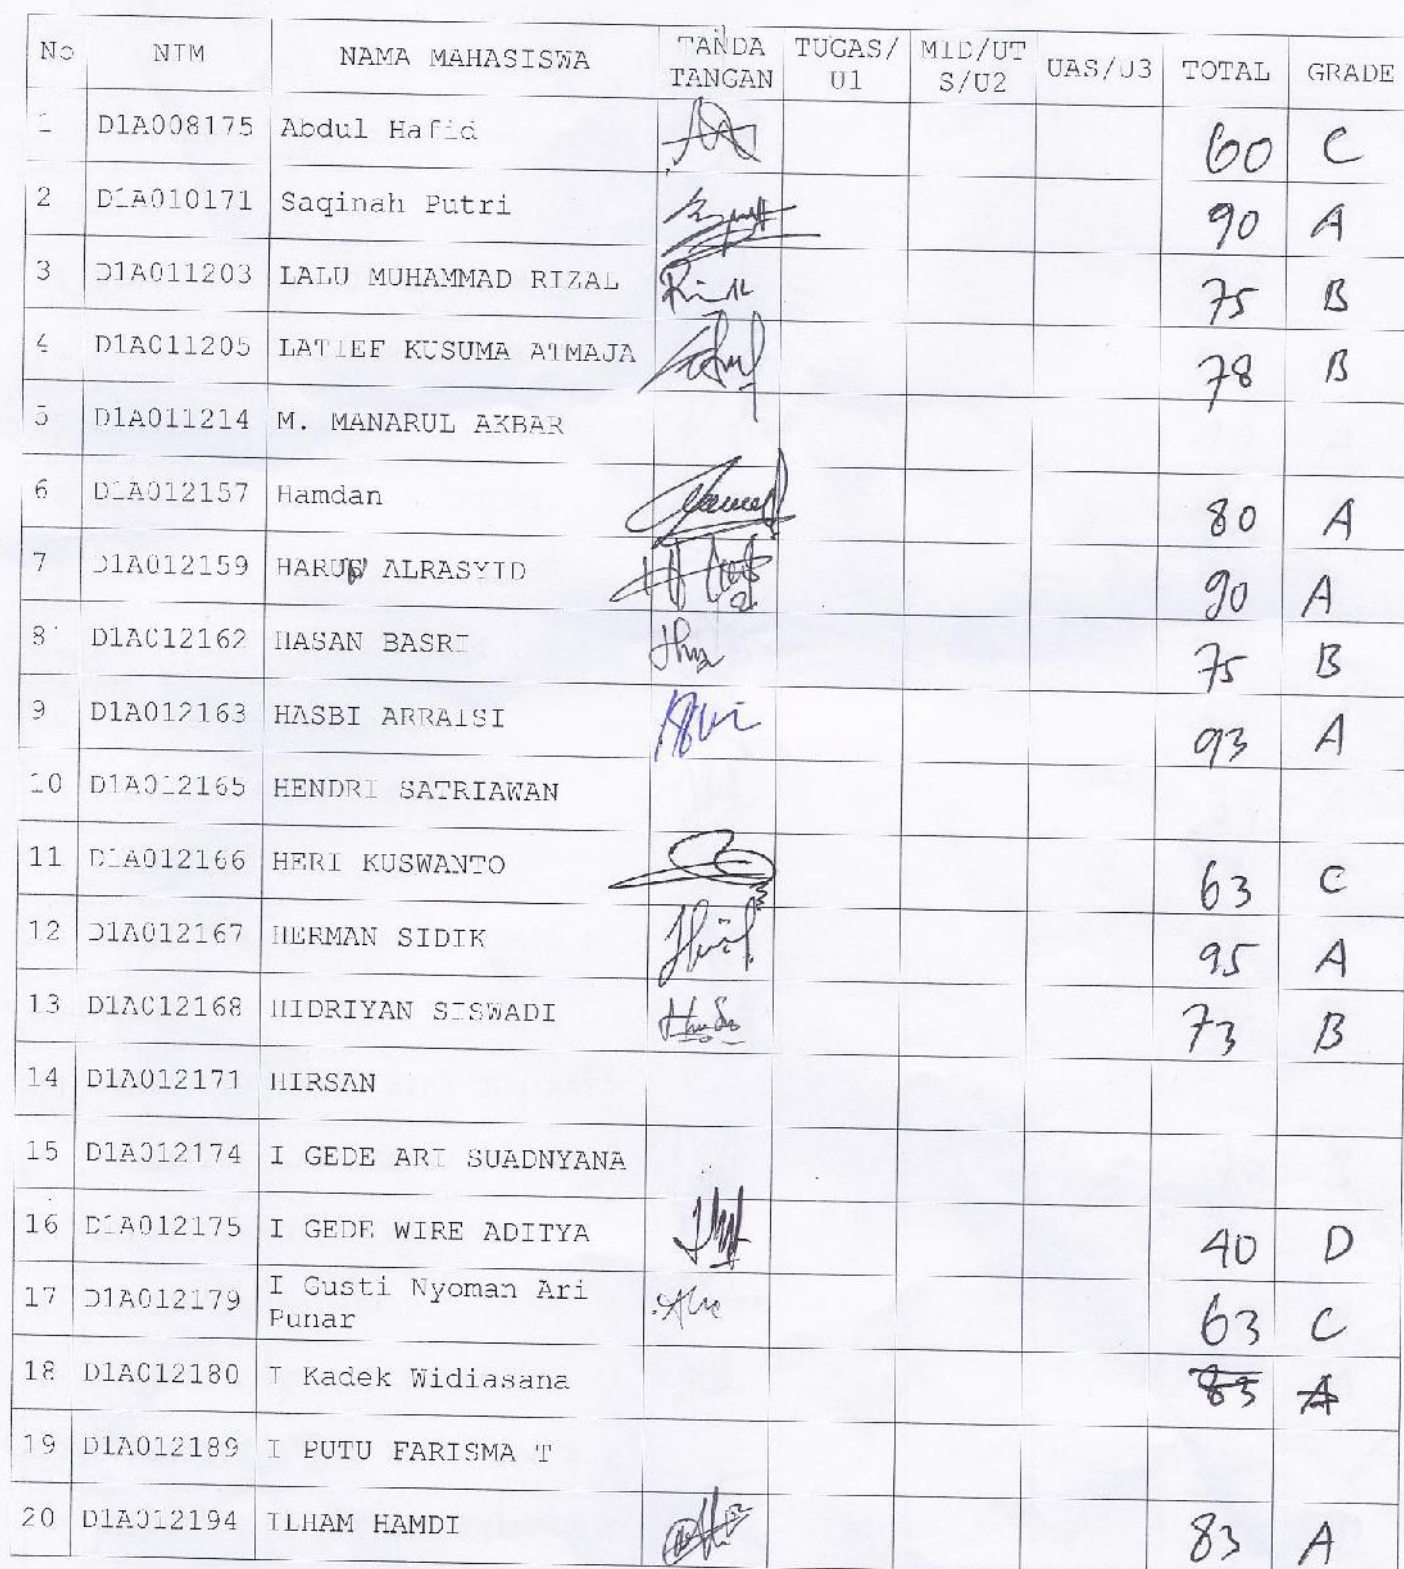 No NIM NAMA MAHASISWA TANDA TANGAN TUGAS/U1 MID/UTS/U2 UAS/U3 TOTAL GRADE
1 D1A008175 Abdul Hafid 60 C
2 D1A010171 Saqinah Putri 90 A
3 D1A011203 LALU MUHAMMAD RIZAL 75 B
4 D1A011205 LATIEF KUSUMA ATMAJA 78 B
5 D1A011214 M. MANARUL AKBAR
6 D1A012157 Hamdan 80 A
7 D1A012159 HARUN ALRASYID 90 A
8 D1A012162 HASAN BASRI 75 B
9 D1A012163 HASBI ARRAISI 93 A
10 D1A012165 HENDRI SATRIAWAN
11 D1A012166 HERI KUSWANTO 63 C
12 D1A012167 HERMAN SIDIK 95 A
13 D1A012168 HIDRIYAN SISWADI 73 B
14 D1A012171 HIRSAN
15 D1A012174 I GEDE ARI SUADNYANA
16 D1A012175 I GEDE WIRE ADITYA 40 D
17 D1A012179 I Gusti Nyoman Ari Punar 63 C
18 D1A012180 I Kadek Widiasana 83 A
19 D1A012189 I PUTU FARISMA T
20 D1A012194 ILHAM HAMDI 83 A